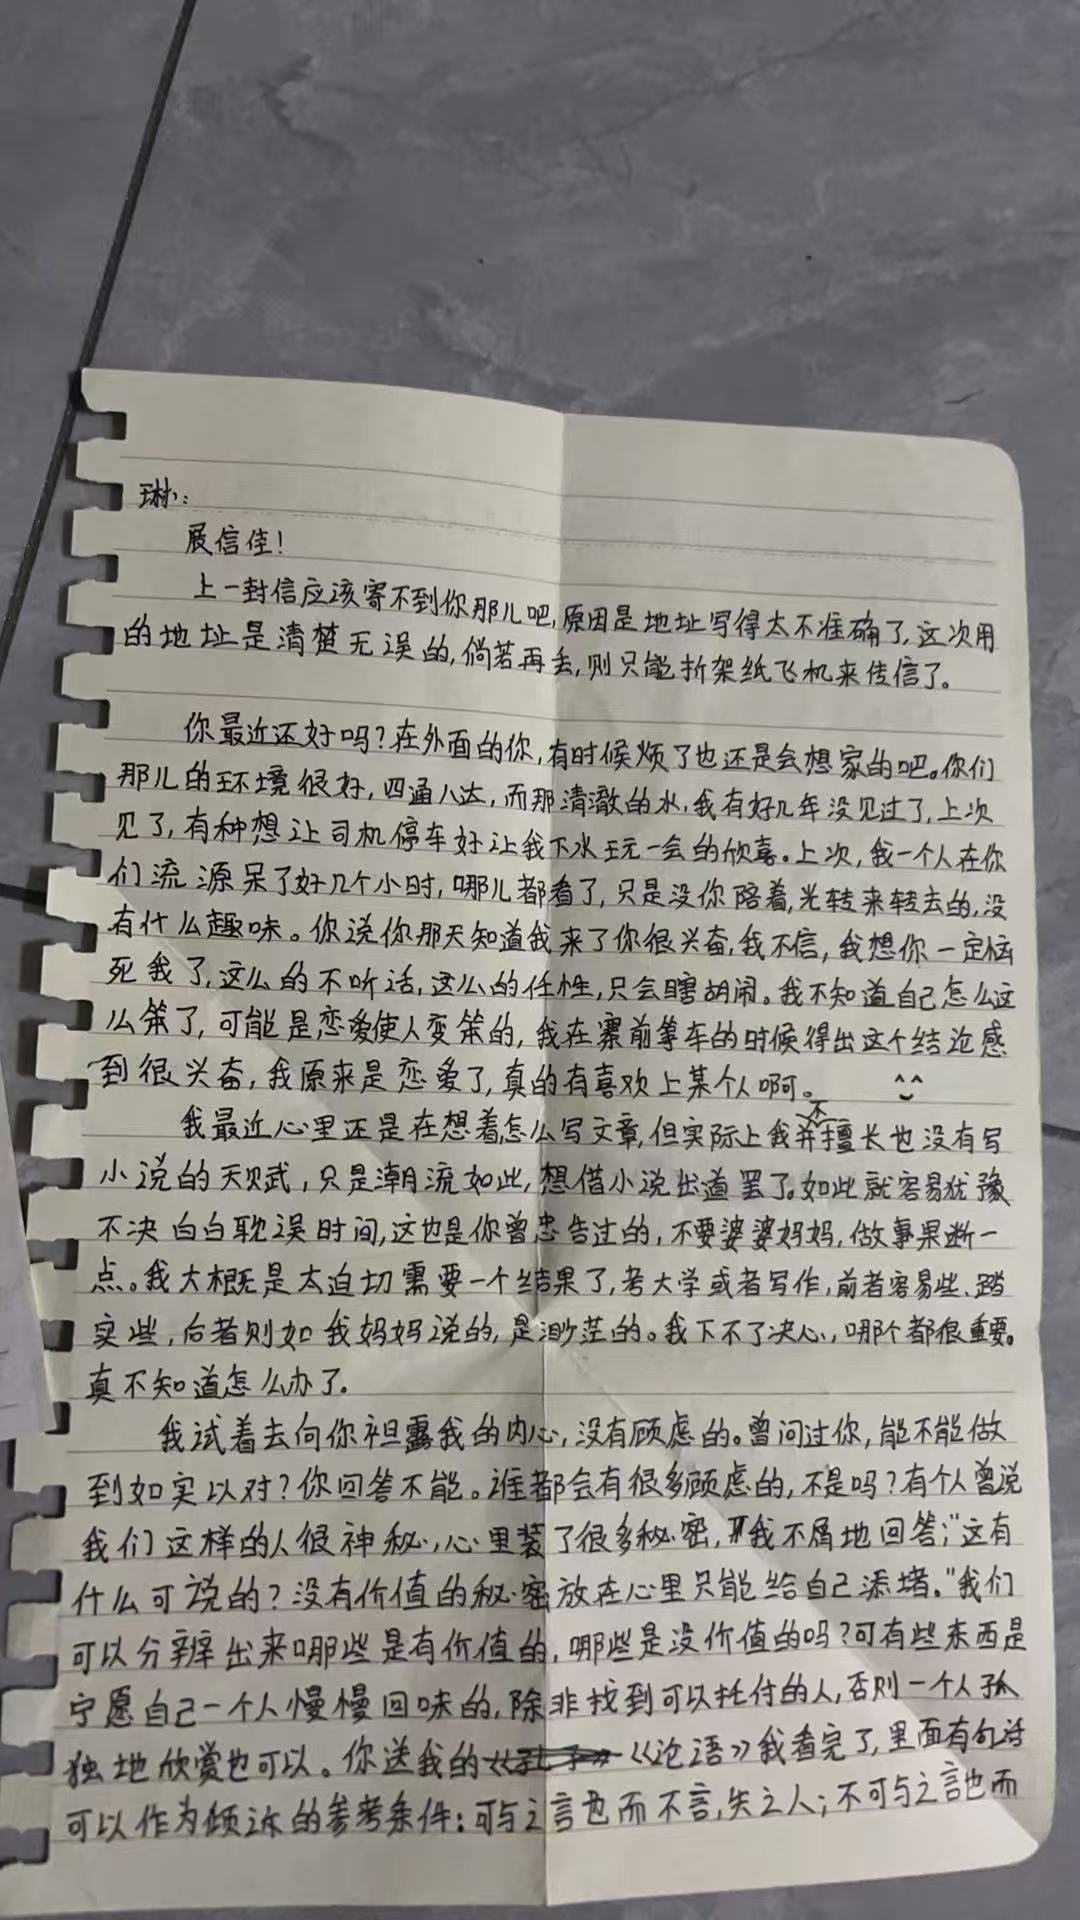 琳：
展信佳！
上一封信应该寄不到你那儿吧，原因是地址写得太不准确了，这次用
的地址是清楚无误的，倘若再丢，则只能折架纸飞机来传信了。
你最近还好吗？在外面的你，有时候烦了也还是会想家的吧。你们
那儿的环境很好，四通八达，而那清澈的水，我有好几年没见过了，上次
见了，有种想让司机停车好让我下水玩一会的欣喜。上次，我一个人在你
们流源呆了好几个小时，哪儿都看了，只是没你陪着，光转来转去的，没
有什么趣味。你说你那天知道我来了你很兴奋，我不信，我想你一定恼
死我了，这么的不听话，这么的任性，只会瞎胡闹。我不知道自己怎么这
么笨了，可能是恋爱使人变笨的，我在寨前等车的时候得出这个结论感
到很兴奋，我原来是恋爱了，真的有喜欢上某个人啊。^^
我最近心里还是在想着怎么写文章，但实际上我并不擅长也没有写
小说的天赋，只是潮流如此，想借小说出道罢了。如此就容易犹豫
不决白白耽误时间，这也是你曾忠告过的，不要婆婆妈妈，做事果断一
点。我大概是太迫切需要一个结果了，考大学或者写作，前者容易些、踏
实些，后者则如我妈妈说的，是渺茫的。我下不了决心，哪个都很重要。
真不知道怎么办了。
我试着去向你袒露我的内心，没有顾虑的。曾问过你，能不能做
到如实以对？你回答不能。谁都会有很多顾虑的，不是吗？有个人曾说
我们这样的人很神秘，心里装了很多秘密，我不屑地回答；“这有
什么可说的？没有价值的秘密放在心里只能给自己添堵。”我们
可以分辨出来哪些是有价值的，哪些是没价值的吗？可有些东西是
宁愿自己一个人慢慢回味的，除非找到可以托付的人，否则一个人孤
独地欣赏也可以。你送我的《论语》我看完了，里面有句话
可以作为倾诉的参考条件：可与之言也而不言，失之人；不可与之言也而